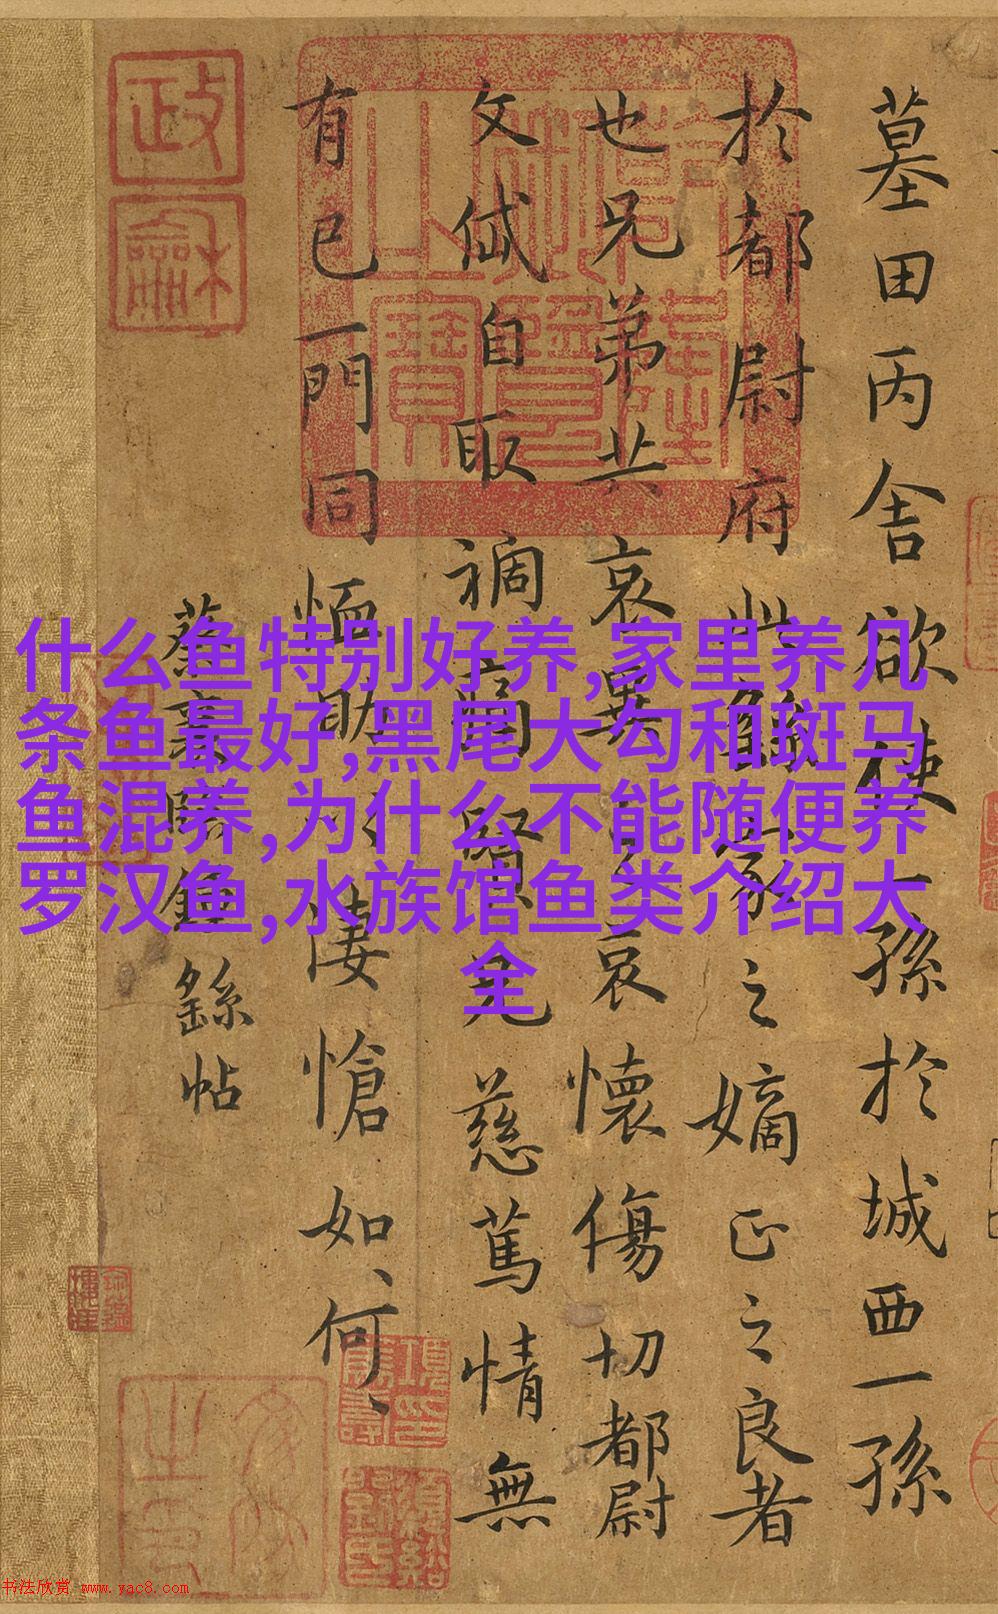 什么鱼特别好养,家里养几
条鱼最好,黑尾大勾和斑马
鱼混养,为什么不能随便养
罗汉鱼,水族馆鱼类介绍大
全
墓田丙舍欲使一孫於城西一孫
於都尉府此繇家之嫡正之良者
也兄弟共哀異之哀懷傷切都尉
文岱自取禍痛賢兄慈篤情無
有已一門同恤助以悽愴如、何、
蔡襄臨鍾繇帖
政
龢
书法欣赏 www.yac8.com